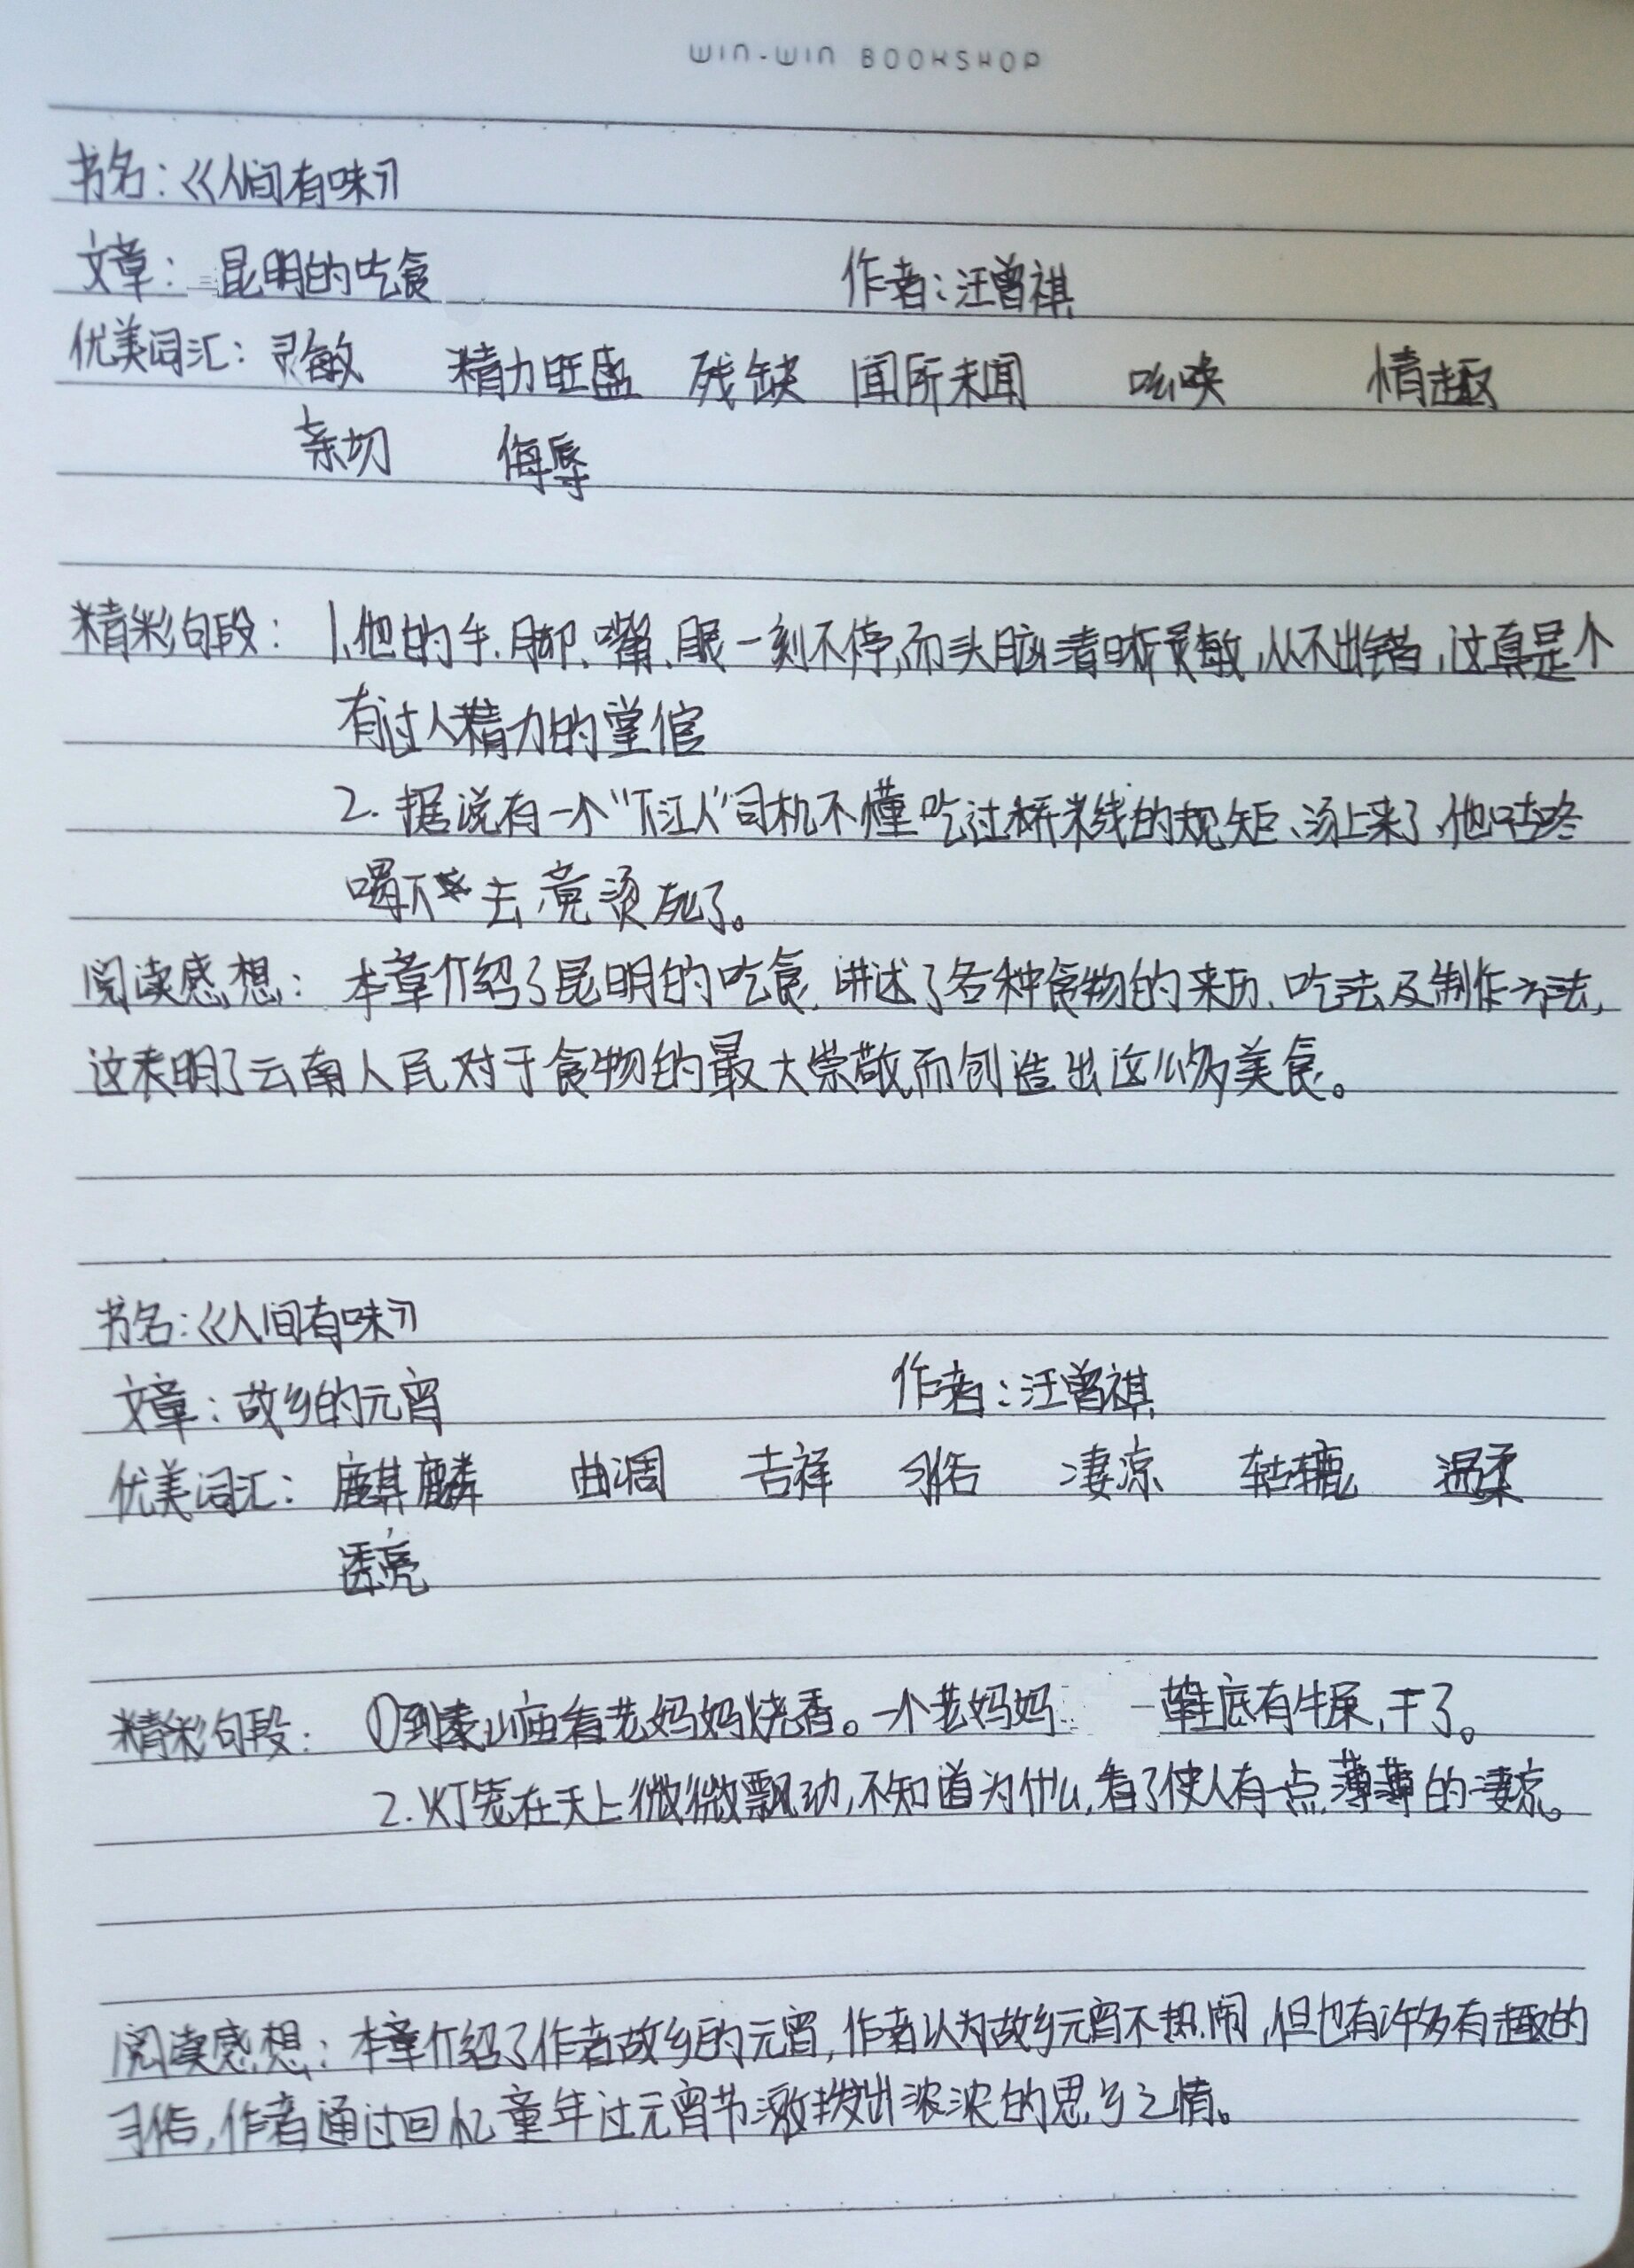 WIN-WIN BOOKSHOP
书名：《人间有味》
文章： 昆明的吃食 作者：汪曾祺
优美词汇：灵敏 精力旺盛 残缺 闻所未闻 吆唤 情趣
亲切 侮辱
精彩句段： 1、他的手、脚、嘴、眼一刻不停,而头脑清晰灵敏,从不出错,这真是个
有过人精力的堂倌
2. 据说有一个“下江人”司机不懂吃过桥米线的规矩、汤上来了,他咕咚
喝下去,竟烫死了。
阅读感想： 本章介绍了昆明的吃食,讲述了各种食物的来历、吃法及制作方法,
这表明了云南人民对于食物的最大崇敬而创造出这么多美食。
书名：《人间有味》
文章：故乡的元宵 作者：汪曾祺
优美词汇： 麒麟 曲调 吉祥 习俗 凄凉 轱辘 温柔
透亮
精彩句段： ①到泰山庙看老妈妈烧香。一个老妈妈 鞋底有牛屎,干了。
2.灯笼在天上微微飘动,不知道为什么,看了使人有一点薄薄的凄凉。
阅读感想：本章介绍了作者故乡的元宵,作者认为故乡元宵不热闹,但也有许多有趣的
习俗,作者通过回忆童年过元宵节激发出浓浓的思乡之情。